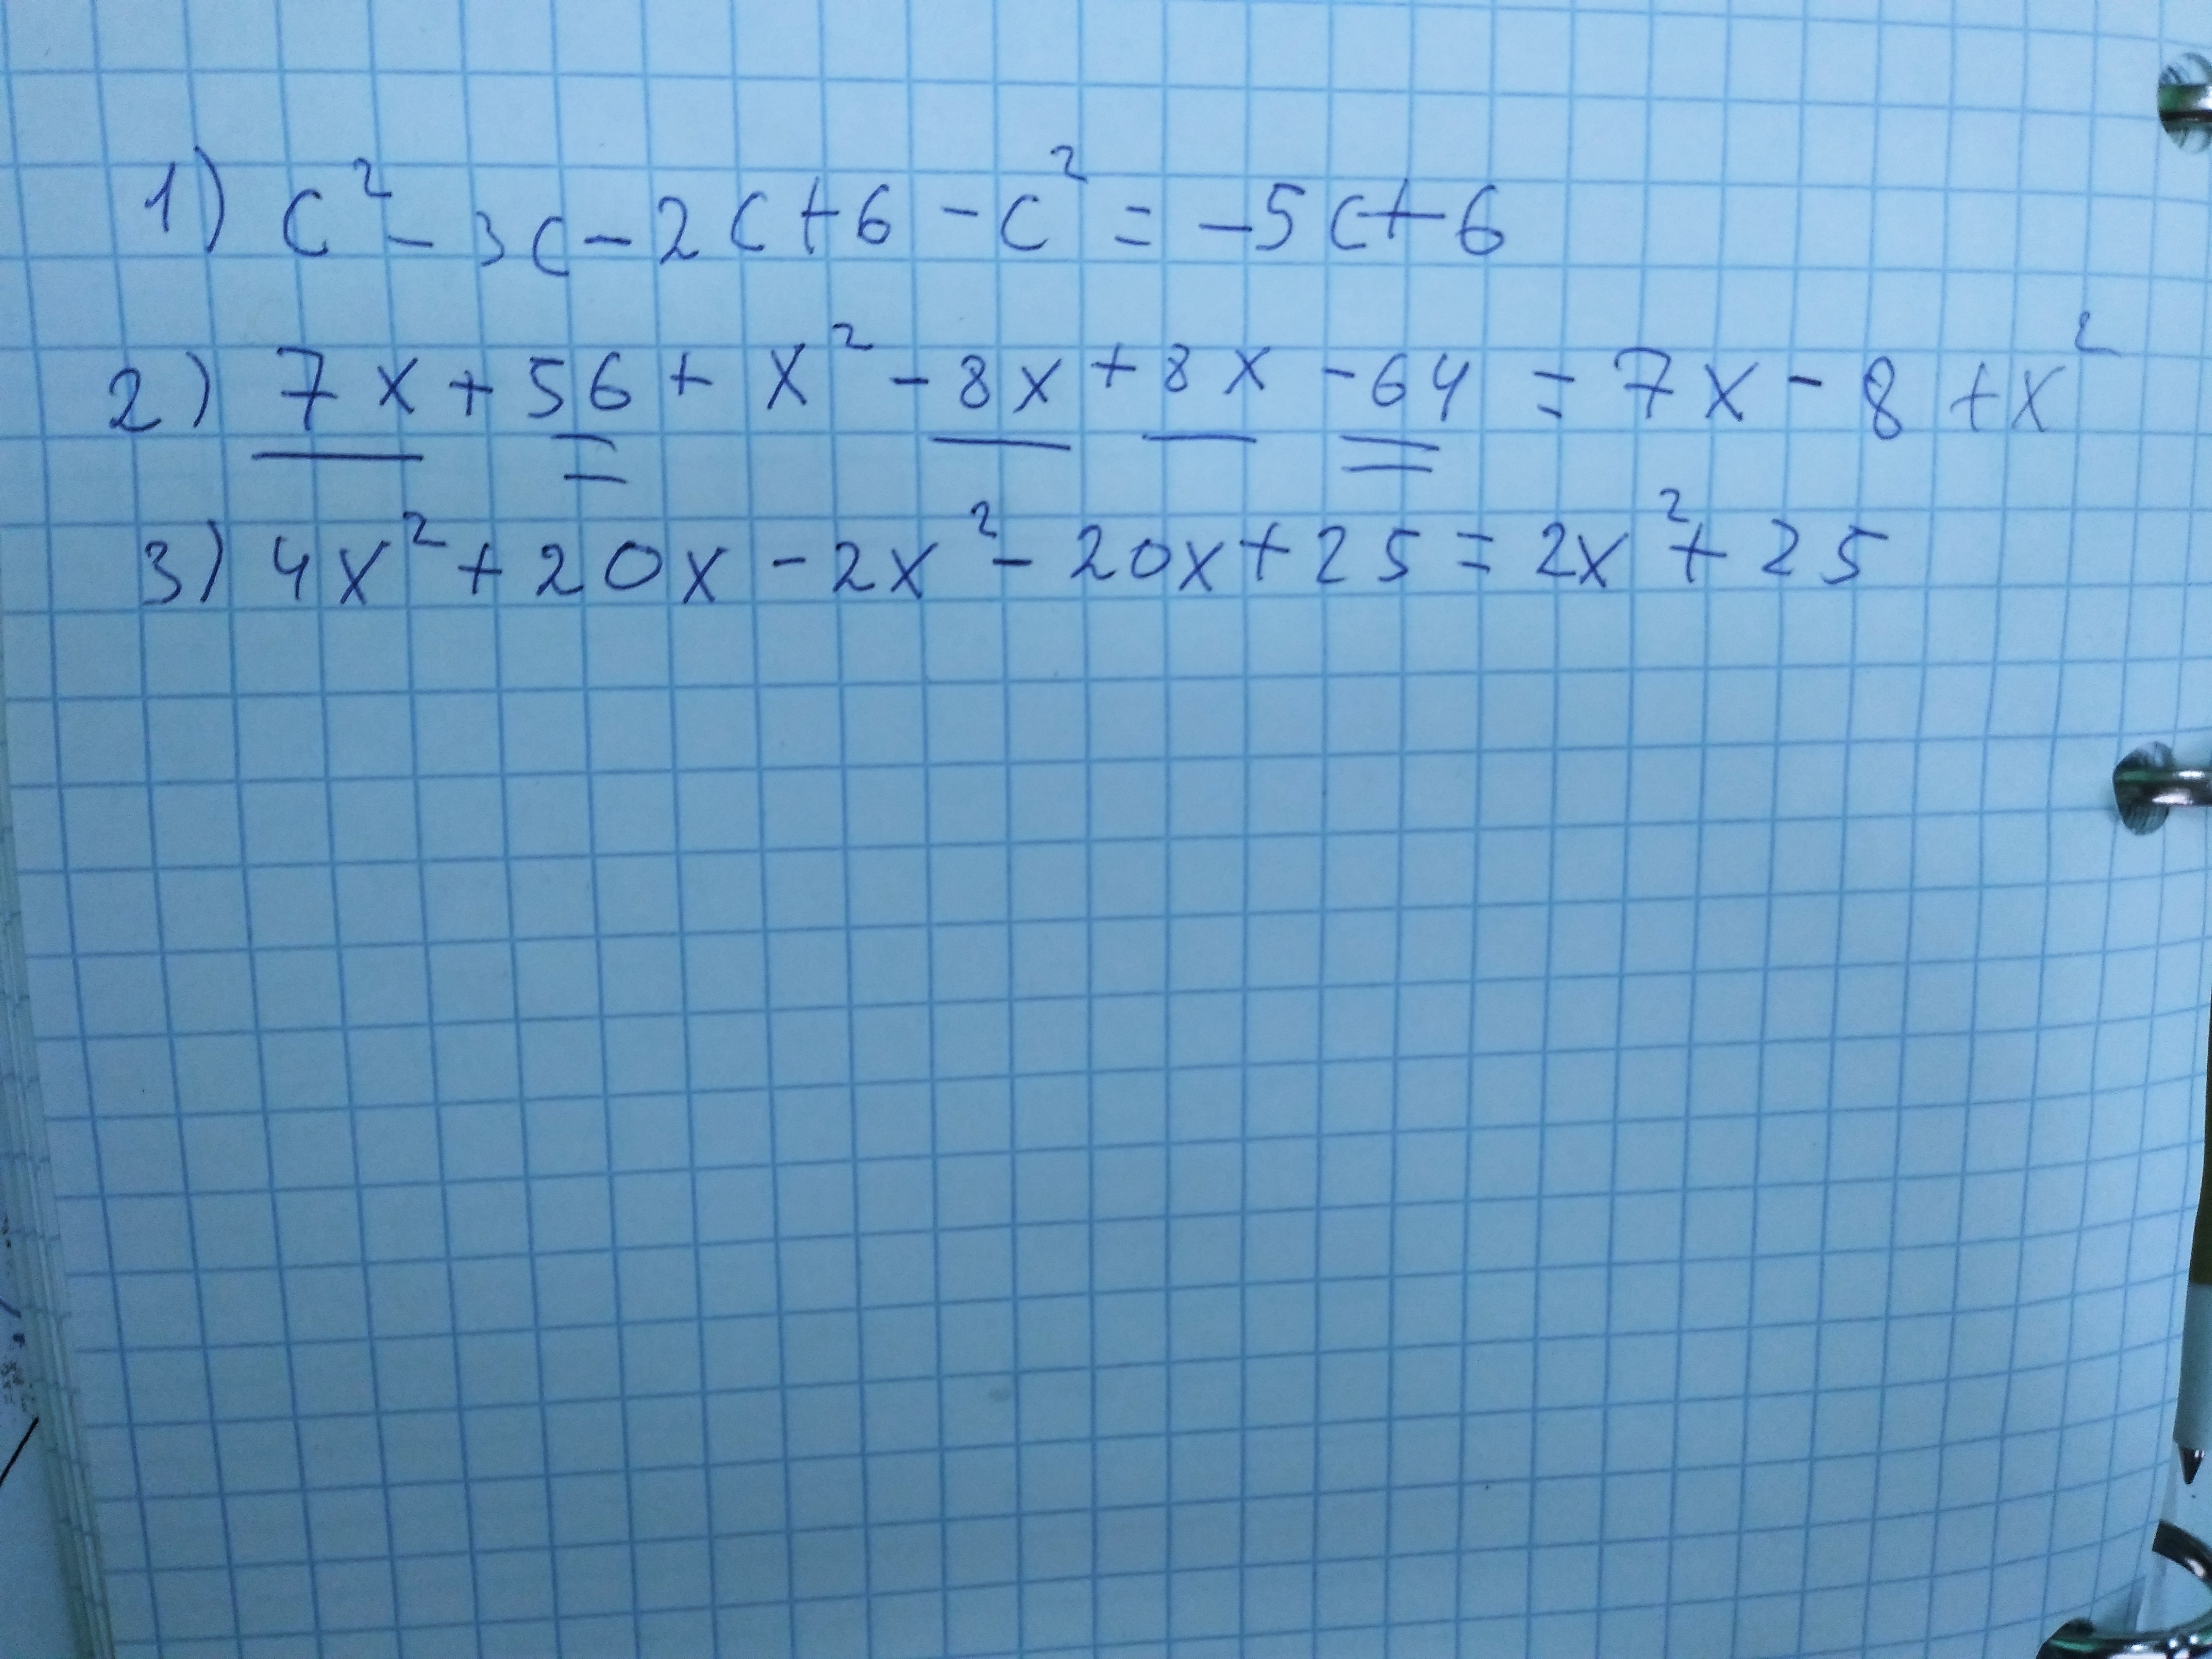 1) c² - 3c - 2c + 6 - c² = -5c + 6
2) 7x + 56 + x² - 8x + 8x - 64 = 7x - 8 + x²
3) 4x² + 20x - 2x² - 20x + 25 = 2x² + 25